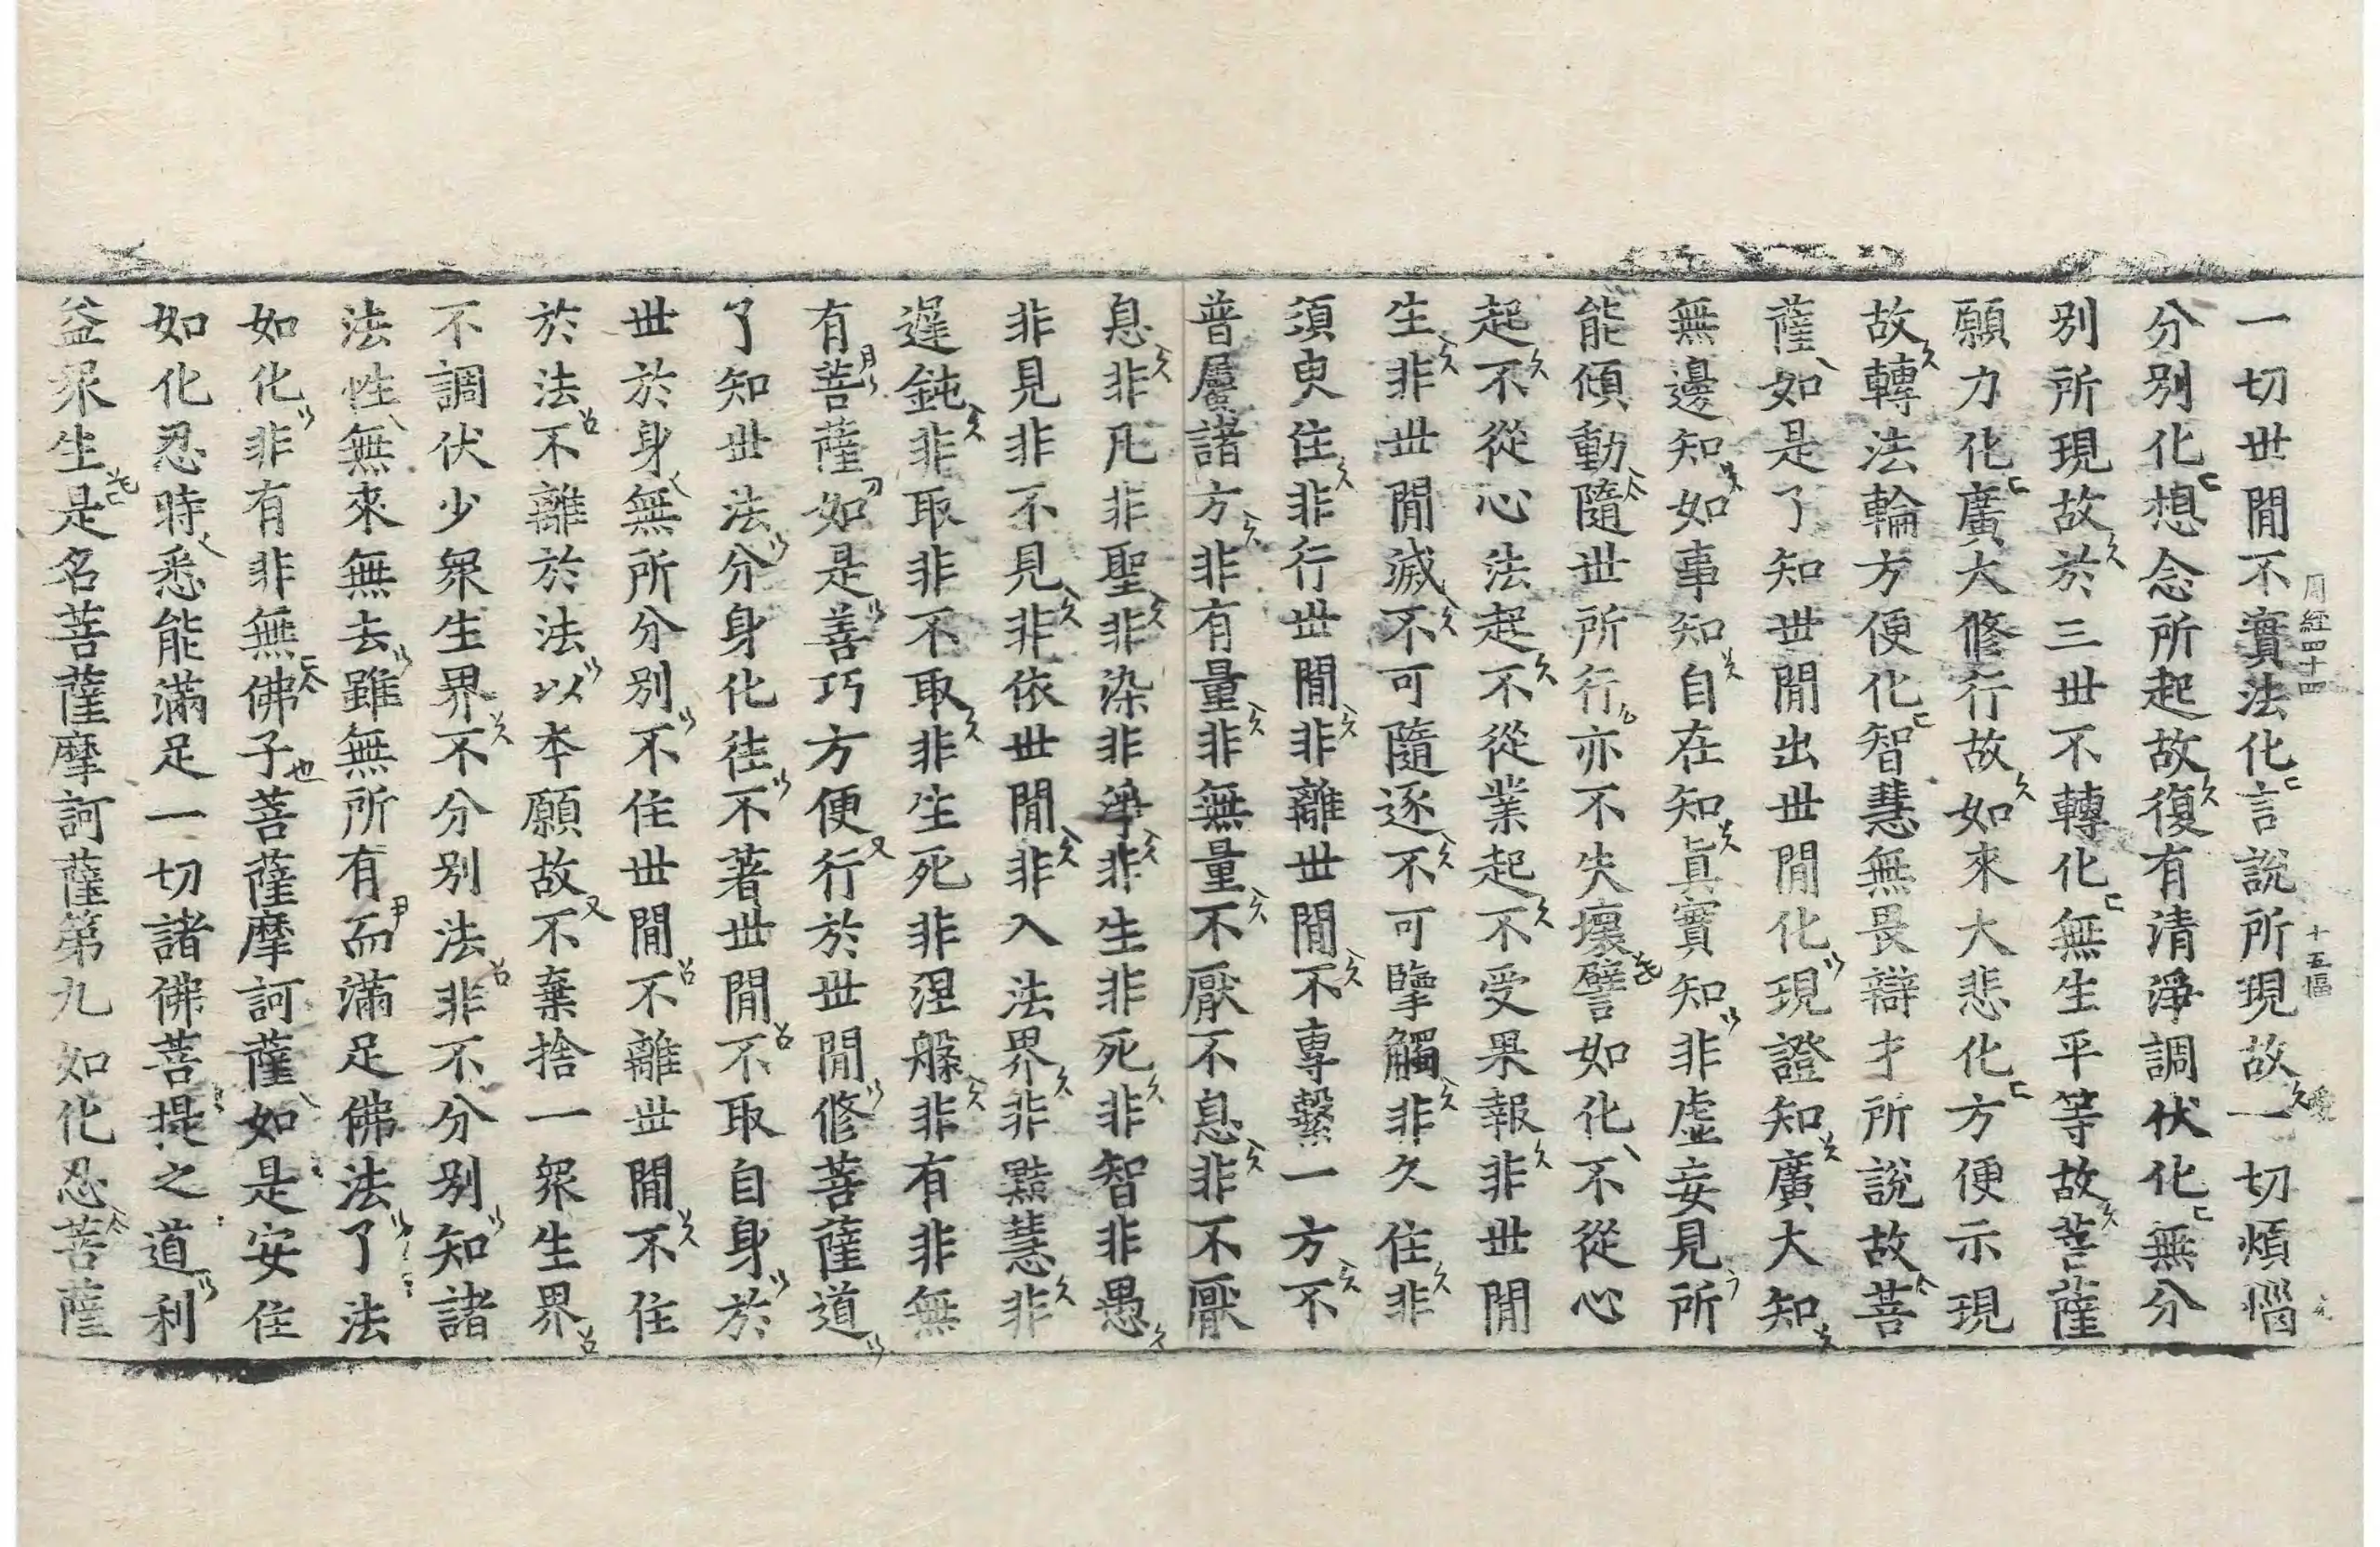 一切世閒不實法化言說所現故一切煩惱
周經四十四 十五幅
分別化想念所起故復有清淨調伏化無分
別所現故於三世不轉化無生平等故菩薩
願力化廣大修行故如來大悲化方便示現
故轉法輪方便化智慧無畏辯才所說故菩
薩如是了知世閒出世閒化現證知廣大知
無邊知如事知自在知眞實知非虛妄見所
能傾動隨世所行亦不失壞譬如化不從心
起不從心法起不從業起不受果報非世閒
生非世閒滅不可隨逐不可擥觸非久住非
須臾住非行世閒非離世閒不專繫一方不
普屬諸方非有量非無量不厭不息非不厭
息非凡非聖非染非淨非生非死非智非愚
非見非不見非依世閒非入法界非黠慧非
遲鈍非取非不取非生死非涅槃非有非無
有菩薩如是善巧方便行於世閒修菩薩道
了知世法分身化往不著世閒不取自身於
世於身無所分別不住世閒不離世閒不住
於法不離於法以本願故不棄捨一眾生界
不調伏少眾生界不分別法非不分別知諸
法性無來無去雖無所有而滿足佛法了法
如化非有非無佛子菩薩摩訶薩如是安住
如化忍時悉能滿足一切諸佛菩提之道利
益眾生是名菩薩摩訶薩第九如化忍菩薩